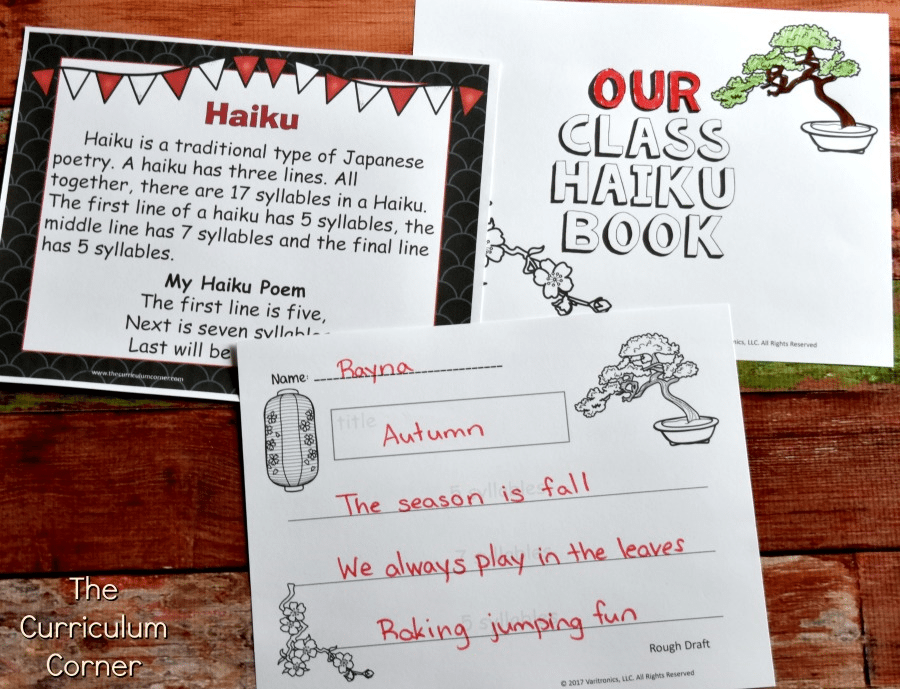 Haiku
Haiku is a traditional type of Japanese
poetry. A haiku has three lines. All
together, there are 17 syllables in a Haiku.
The first line of a haiku has 5 syllables, the
middle line has 7 syllables and the final line
has 5 syllables.
My Haiku Poem
The first line is five,
Next is seven
Last will be
www.thecurriculumcorner.com
OUR
CLASS
HAIKU
BOOK
LLC. All Rights Reserved
Name: Rayna
title
Autumn
5 syllables
The season is fall
7 syllables
We always play in the leaves
5 syllables
Raking jumping fun
Rough Draft
© 2017 Varitronics, LLC. All Rights Reserved
The
Curriculum
Corner